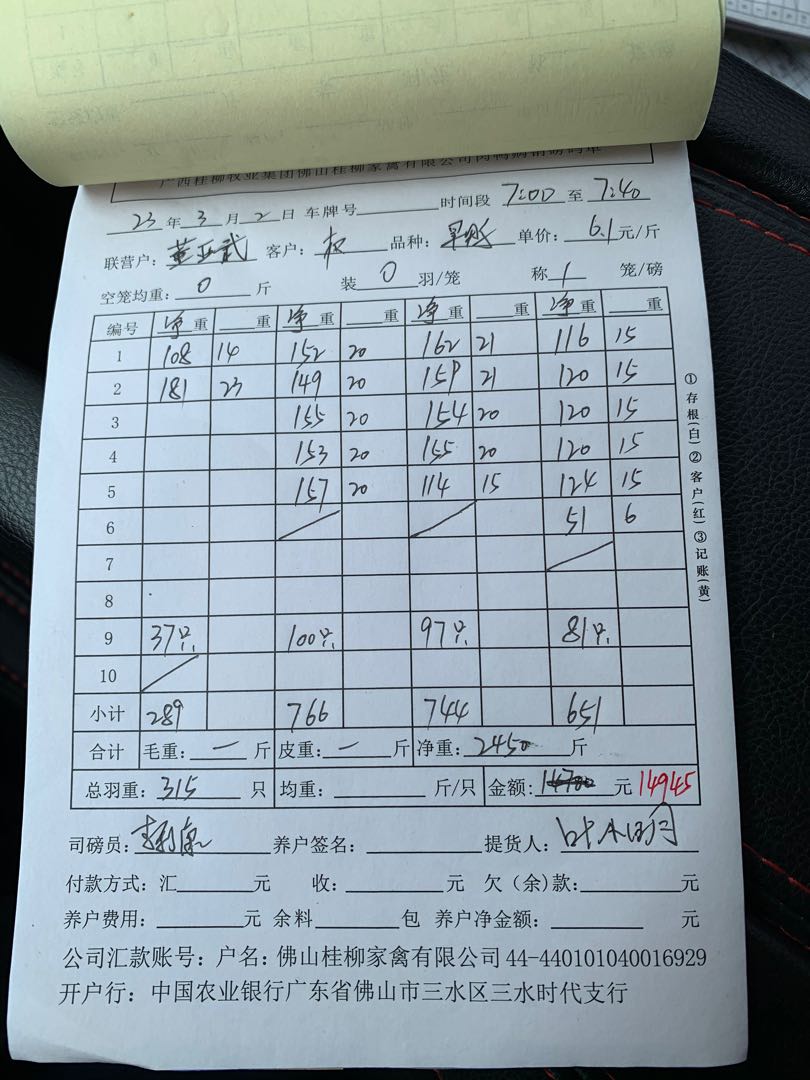 广西桂柳牧业集团佛山桂柳家禽有限公司肉鸭购销磅码单
23年3月2日 车牌号 时间段 7:00 至 7:40
联营户: 董正武 客户: 权 品种: 单价: 6.1 元/斤
空笼均重: 0 斤 装 0 羽/笼 称 1 笼/磅
编号 净重 重 净重 重 净重 重 净重 重
1 108 14 152 20 162 21 116 15
2 181 23 149 20 159 21 120 15
3 155 20 154 20 120 15
4 153 20 155 20 120 15
5 157 20 114 15 124 15
6 51 6
7
8
9 37只 100只 97只 81只
10
小计 289 766 744 651
合计 毛重: 一 斤 皮重: 一 斤 净重: 2450 斤
总羽重: 315 只 均重: 斤/只 金额: 14700 元 14945
司磅员: 养户签名: 提货人: 叶小明
付款方式: 汇 元 收: 元 欠(余)款: 元
养户费用: 元 余料 包 养户净金额: 元
公司汇款账号: 户名: 佛山桂柳家禽有限公司 44-440101040016929
开户行: 中国农业银行广东省佛山市三水区三水时代支行
①存根(白)②客户(红)③记账(黄)